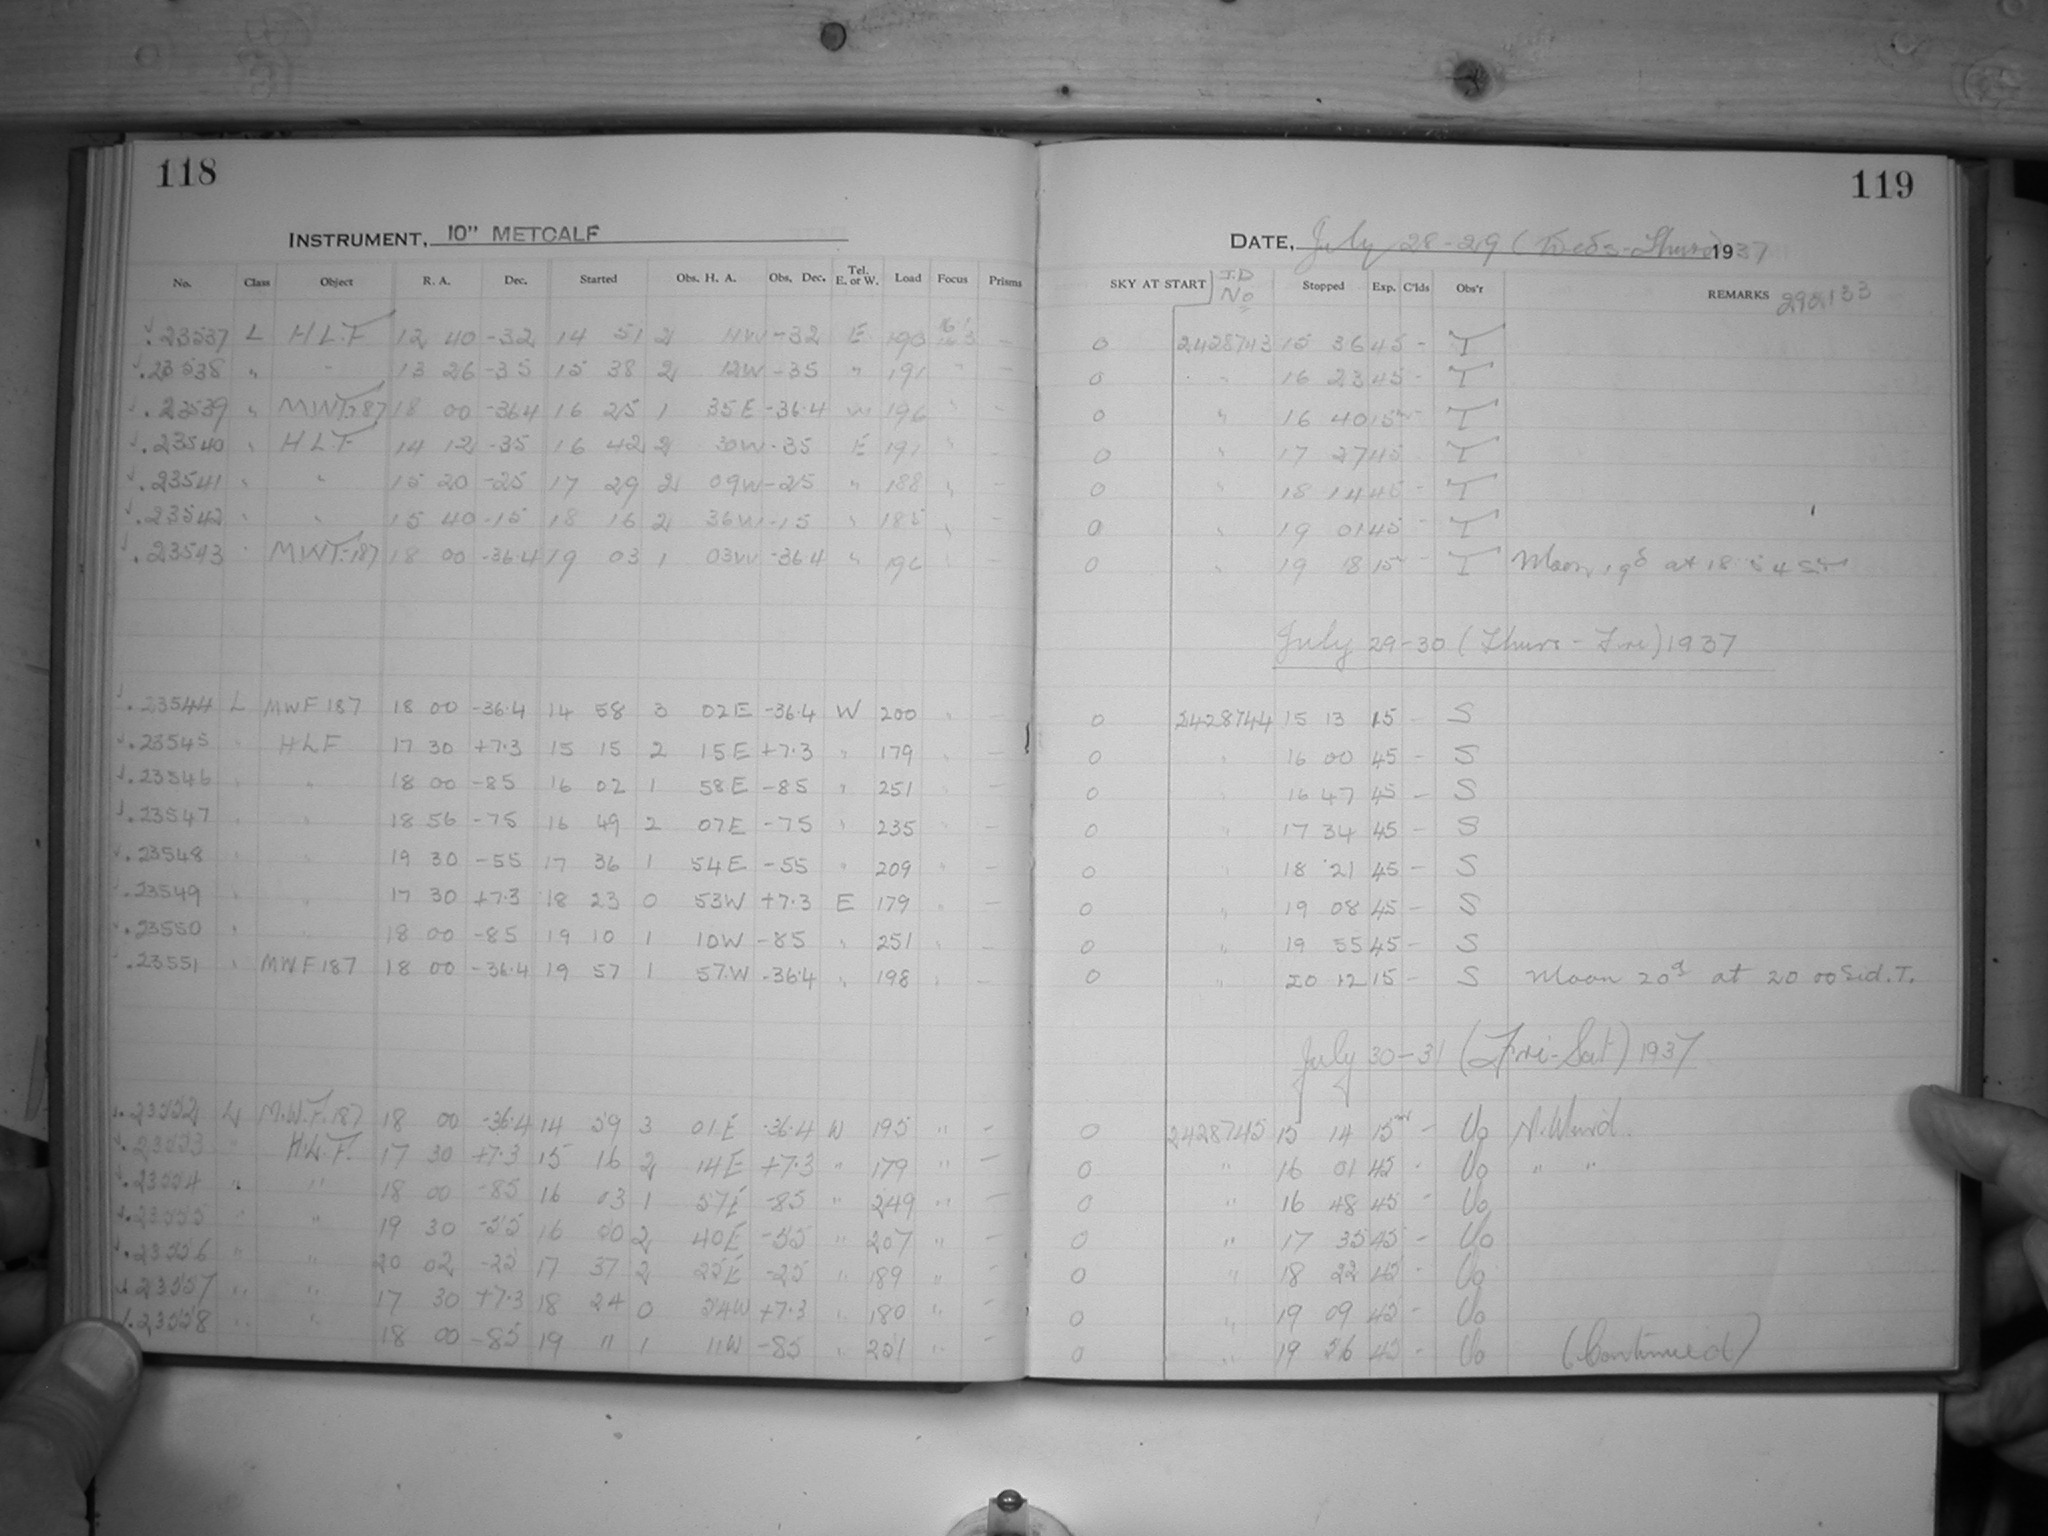 118
INSTRUMENT, 10" METCALF
No. Class Object R. A. Dec. Started Obs. H. A. Obs. Dec. Tel. E. or W. Load Focus Prisms
.23537 L H.L.F 12 40 -32 14 51 2 11W -32 E 190 –
.23538 " " 13 26 -35 15 38 2 12W -35 " 191 " –
.23539 " MWF.187 18 00 -36.4 16 25 1 35E -36.4 W 196 " –
.23540 " H L F 14 12 -35 16 42 2 30W -35 E 191 " –
.23541 " " 15 20 -25 17 29 2 09W -25 " 188 " –
.23542 " " 15 40 -15 18 16 2 36W -15 " 185 " –
.23543 " MWF.187 18 00 -36.4 19 03 1 03W -36.4 " 196 " –
.23544 L MWF 187 18 00 -36.4 14 58 3 02E -36.4 W 200 " –
.23545 " HLF 17 30 +7.3 15 15 2 15E +7.3 " 179 " –
.23546 " " 18 00 -85 16 02 1 58E -85 " 251 " –
.23547 " " 18 56 -75 16 49 2 07E -75 " 235 " –
.23548 " " 19 30 -55 17 36 1 54E -55 " 209 " –
.23549 " " 17 30 +7.3 18 23 0 53W +7.3 E 179 " –
.23550 " " 18 00 -85 19 10 1 10W -85 " 251 " –
.23551 " MWF187 18 00 -36.4 19 57 1 57W -36.4 " 198 " –
.23552 L M.W.F.187 18 00 -36.4 14 59 3 01E -36.4 W 195 " –
.23553 " H.L.F. 17 30 +7.3 15 16 2 14E +7.3 " 179 " –
.23554 " " 18 00 -85 16 03 1 57E -85 " 249 " –
.23555 " " 19 30 -55 16 50 2 40E -55 " 207 " –
.23556 " " 20 02 -25 17 37 2 25E -25 " 189 " –
.23557 " " 17 30 +7.3 18 24 0 54W +7.3 " 180 " –
.23558 " " 18 00 -85 19 11 1 11W -85 " 251 " –
119
DATE, July 28-29 (Weds-Thurs) 1937
SKY AT START J.D No Stopped Exp. C'lds Obs'r REMARKS
0 2428743 15 36 45 - T
0 " 16 23 45 - T
0 " 16 40 15 - T
0 " 17 27 45 - T
0 " 18 14 45 - T
0 " 19 01 45 - T
0 " 19 18 15 - T Moon 19d at 18 54 ST
July 29-30 (Thurs - Fri) 1937
0 2428744 15 13 15 - S
0 " 16 00 45 - S
0 " 16 47 45 - S
0 " 17 34 45 - S
0 " 18 21 45 - S
0 " 19 08 45 - S
0 " 19 55 45 - S
0 " 20 12 15 - S Moon 20d at 20 00 Sid. T.
July 30-31 (Fri-Sat) 1937
0 2428745 15 14 15m - Uo N. Wind.
0 " 16 01 45 - Uo " "
0 " 16 48 45 - Uo
0 " 17 35 45 - Uo
0 " 18 22 45 - Uo
0 " 19 09 45 - Uo
0 " 19 56 45 - Uo (Continued)